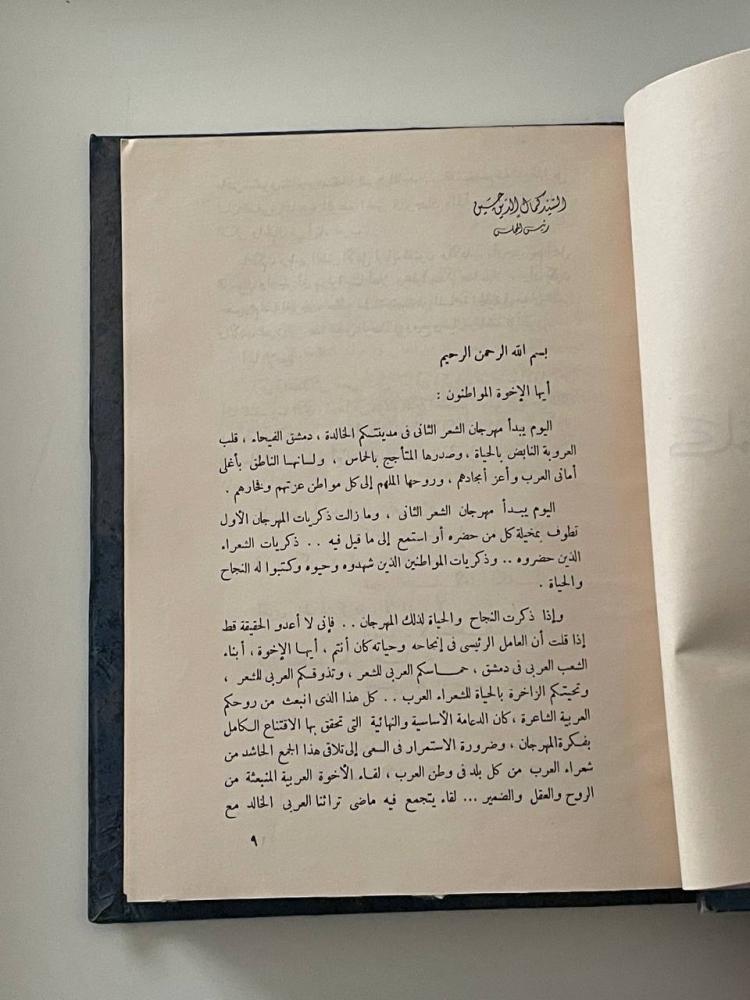 السيد كمال الدين حسين
رئيس المجلس
بسم الله الرحمن الرحيم
أيها الإخوة المواطنون :
اليوم يبدأ مهرجان الشعر الثانى فى مدينتكم الخالدة ، دمشق الفيحاء ، قلب
العروبة النابض بالحياة ، وصدرها المتأجج بالحماس ، ولسانها الناطق بأغلى
أمانى العرب وأعز أمجادهم ، وروحها الملهم إلى كل مواطن عزتهم وفخارهم .
اليوم يبدأ مهرجان الشعر الثانى ، وما زالت ذكريات المهرجان الأول
تطوف بمخيلة كل من حضره أو استمع إلى ما قيل فيه . . ذكريات الشعراء
الذين حضروه .. وذكريات المواطنين الذين شهدوه وحيوه وكتبوا له النجاح
والحياة .
وإذا ذكرت النجاح والحياة لذلك المهرجان . . فإنى لا أعدو الحقيقة قط
إذا قلت أن العامل الرئيسى فى إنجاحه وحياته كان أنتم ، أيها الإخوة ، أبناء
الشعب العربى فى دمشق ، حماسكم العربى للشعر ، وتذوقكم العربى للشعر ،
وتحيتكم الزاخرة بالحياة للشعراء العرب . . كل هذا الذى انبعث من روحكم
العربية الشاعرة ، كان الدعامة الأساسية والنهائية التى تحقق بها الاقتناع الكامل
بفكرة المهرجان ، وضرورة الاستمرار فى السعى إلى تلاقى هذا الجمع الحاشد من
شعراء العرب من كل بلد فى وطن العرب ، لقاء الأخوة العربية المنبعثة من
الروح والعقل والضمير ... لقاء يتجمع فيه ماضى تراثنا العربى الخالد مع
٩